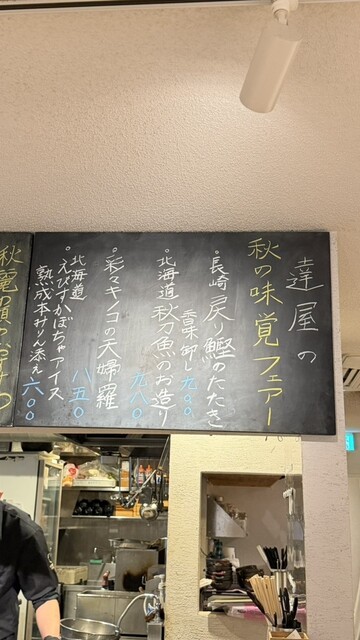 達屋の
秋の味覚フェアー
・長崎 戻り鰹のたたき
香味卸し 九〇〇
・北海道 秋刀魚のお造り
九八〇
・彩々キノコの天婦羅
八五〇
・北海道
えびすかぼちゃアイス
熟成本みりん添え 六〇〇